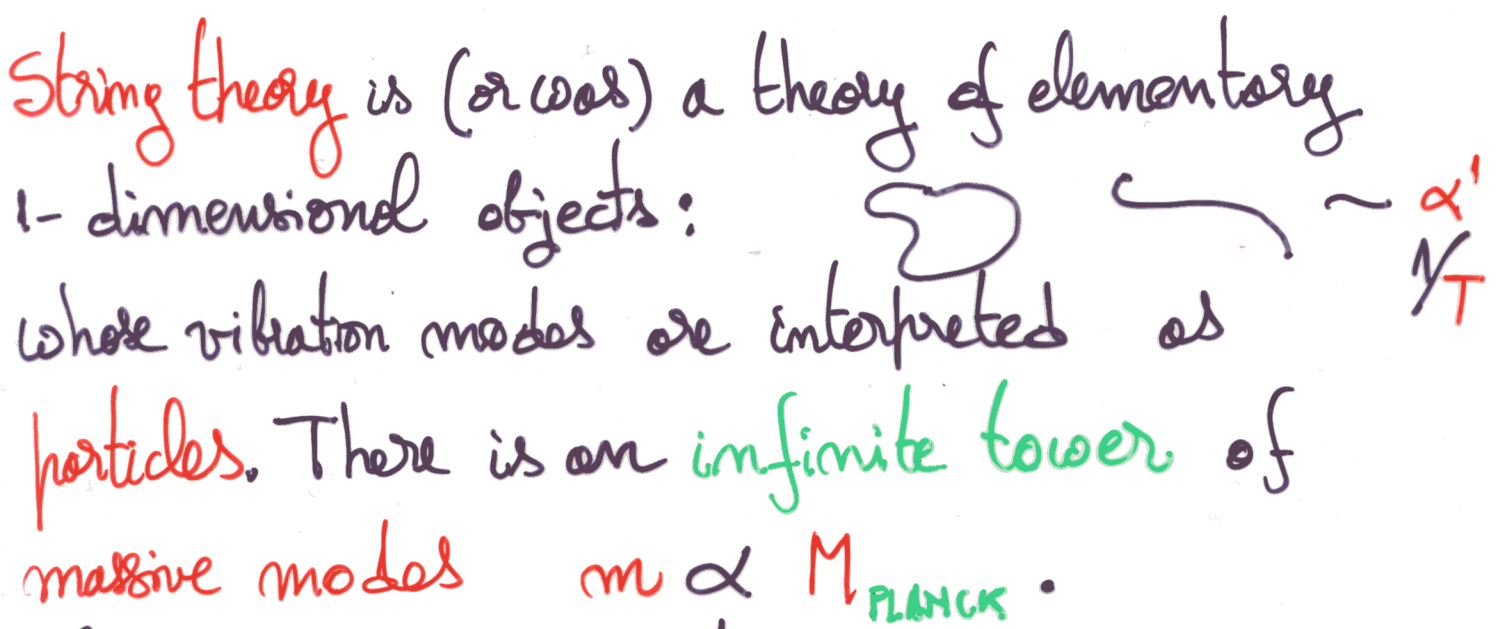 String theory is (or was) a theory of elementary
1-dimensional objects: ~ α'
1/T
whose vibration modes are interpreted as
particles. There is an infinite tower of
massive modes m α M PLANCK .